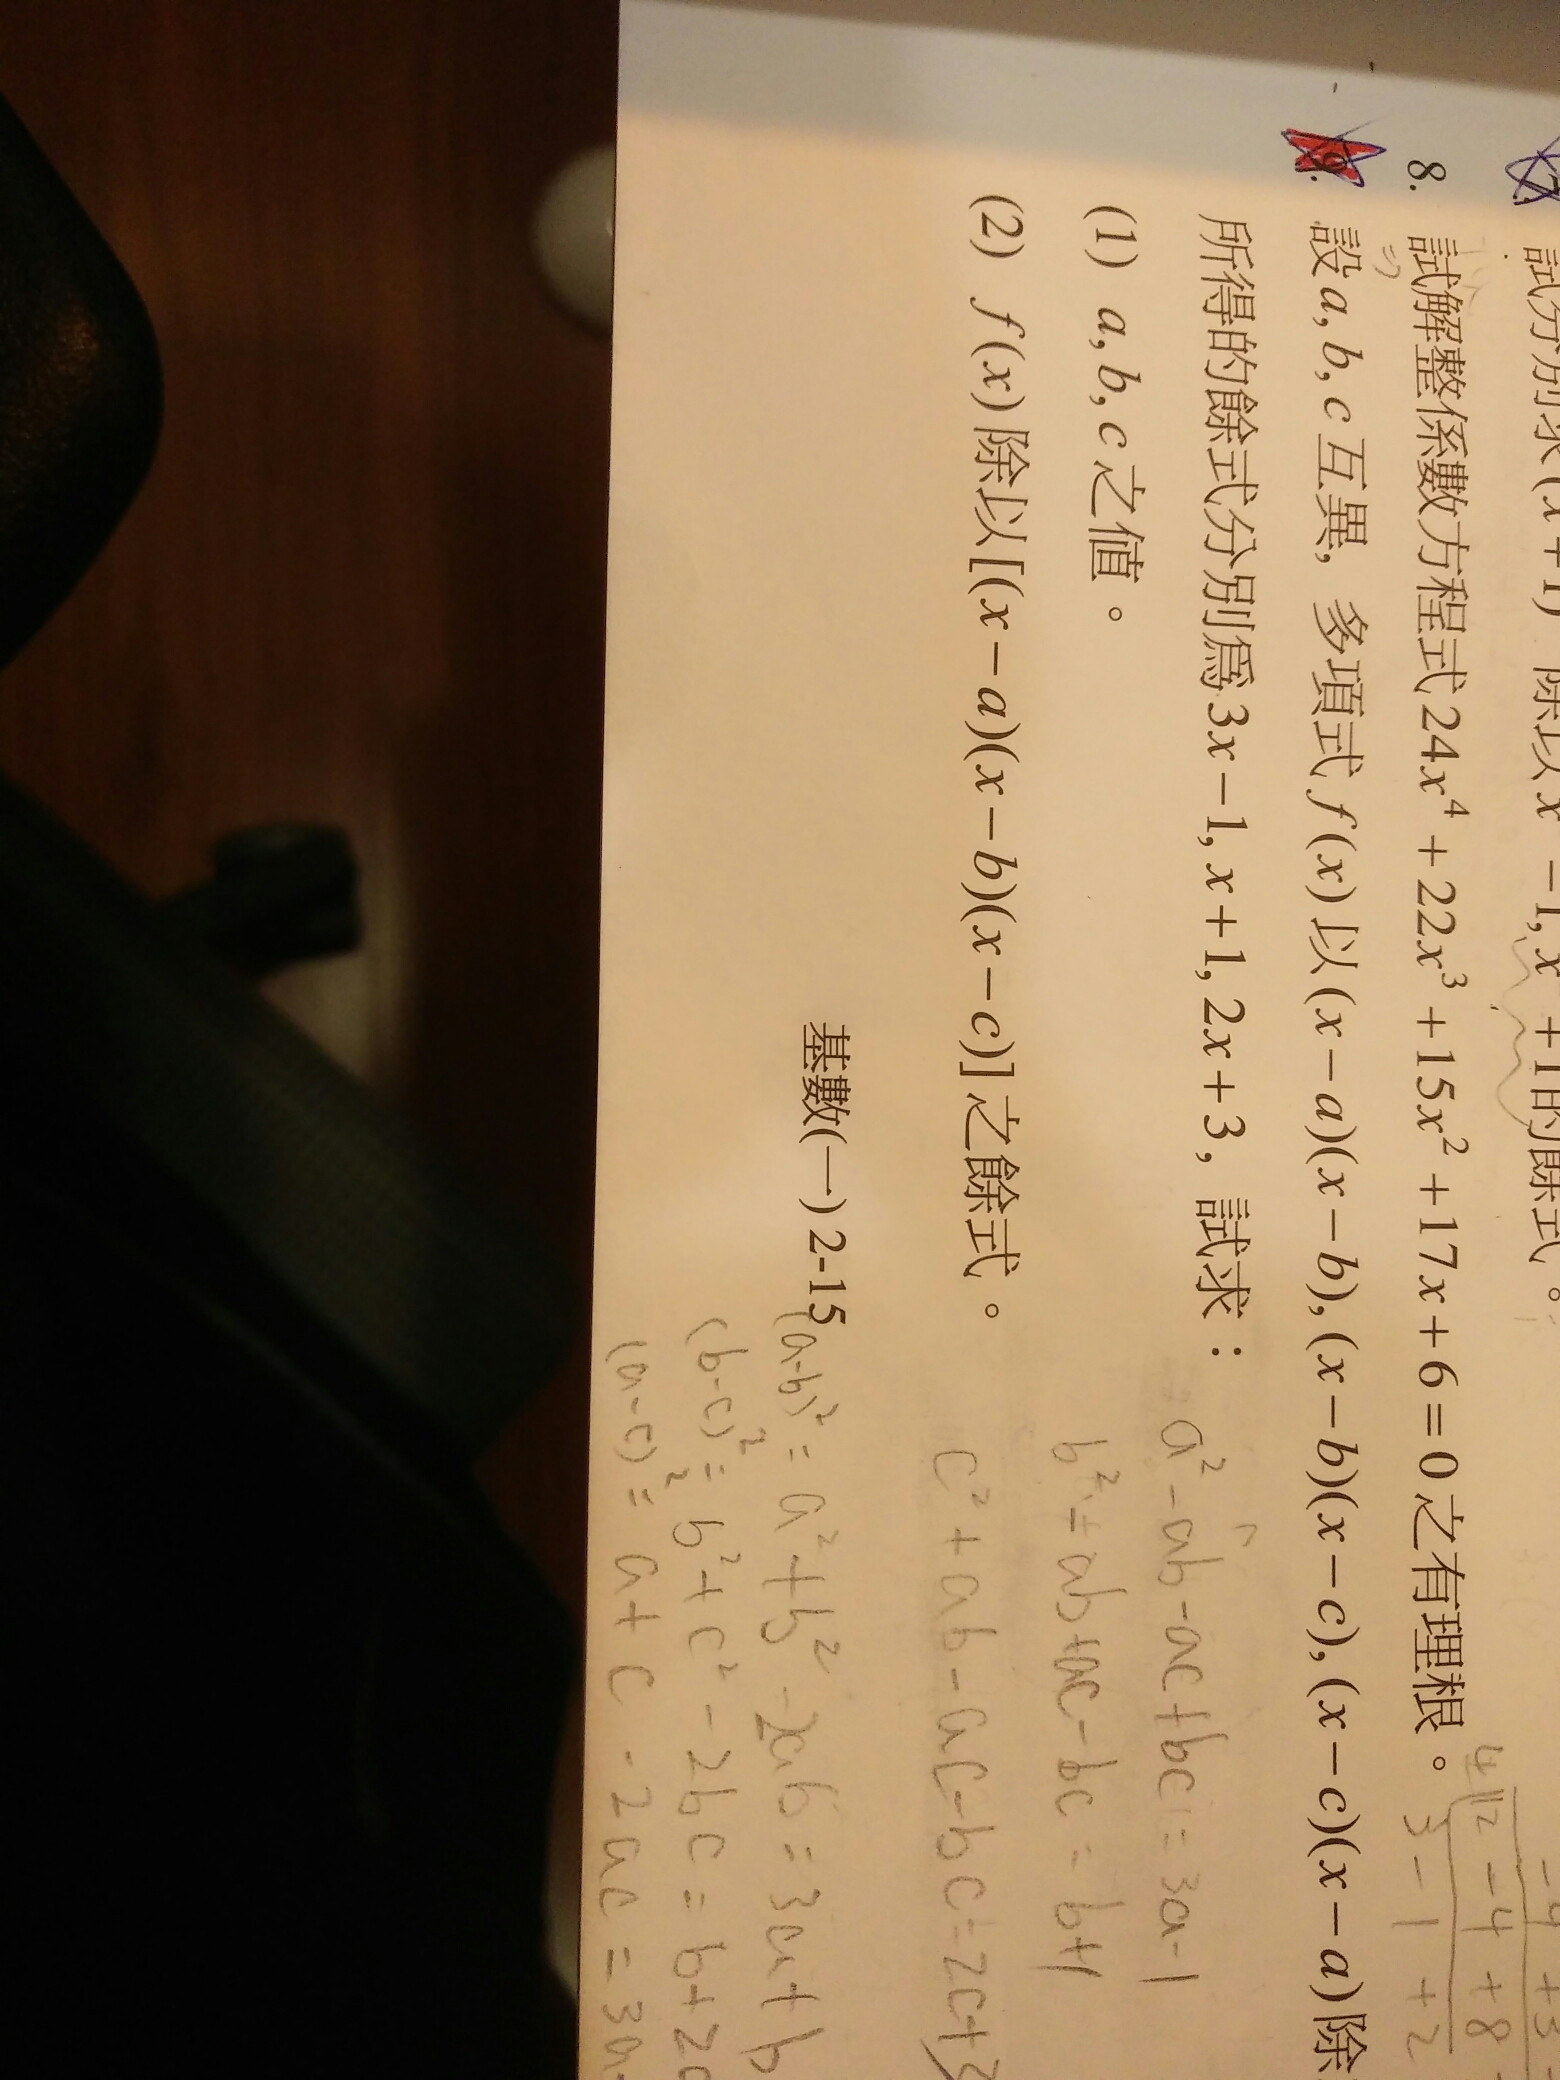 試分別求(x+1) 除以x -1, x +1的餘式。
8. 試解整係數方程式24x⁴+22x³+15x²+17x+6=0之有理根。
9. 設a, b, c互異, 多項式f(x)以(x-a)(x-b), (x-b)(x-c), (x-c)(x-a)除
所得的餘式分別為3x-1, x+1, 2x+3, 試求：
(1) a, b, c之值。
(2) f(x)除以[(x-a)(x-b)(x-c)]之餘式。
基數(一) 2-15
-4 +3
4 12 -4 +8
3 -1 +2
a²-ab-ac+bc=3a-1
b²+ab+ac-bc=b+1
c²+ab-ac-bc=2c+3
(a-b)²=a²+b²-2ab=3a+b
(b-c)²=b²+c²-2bc=b+2c
(a-c)²=a+c-2ac=3a